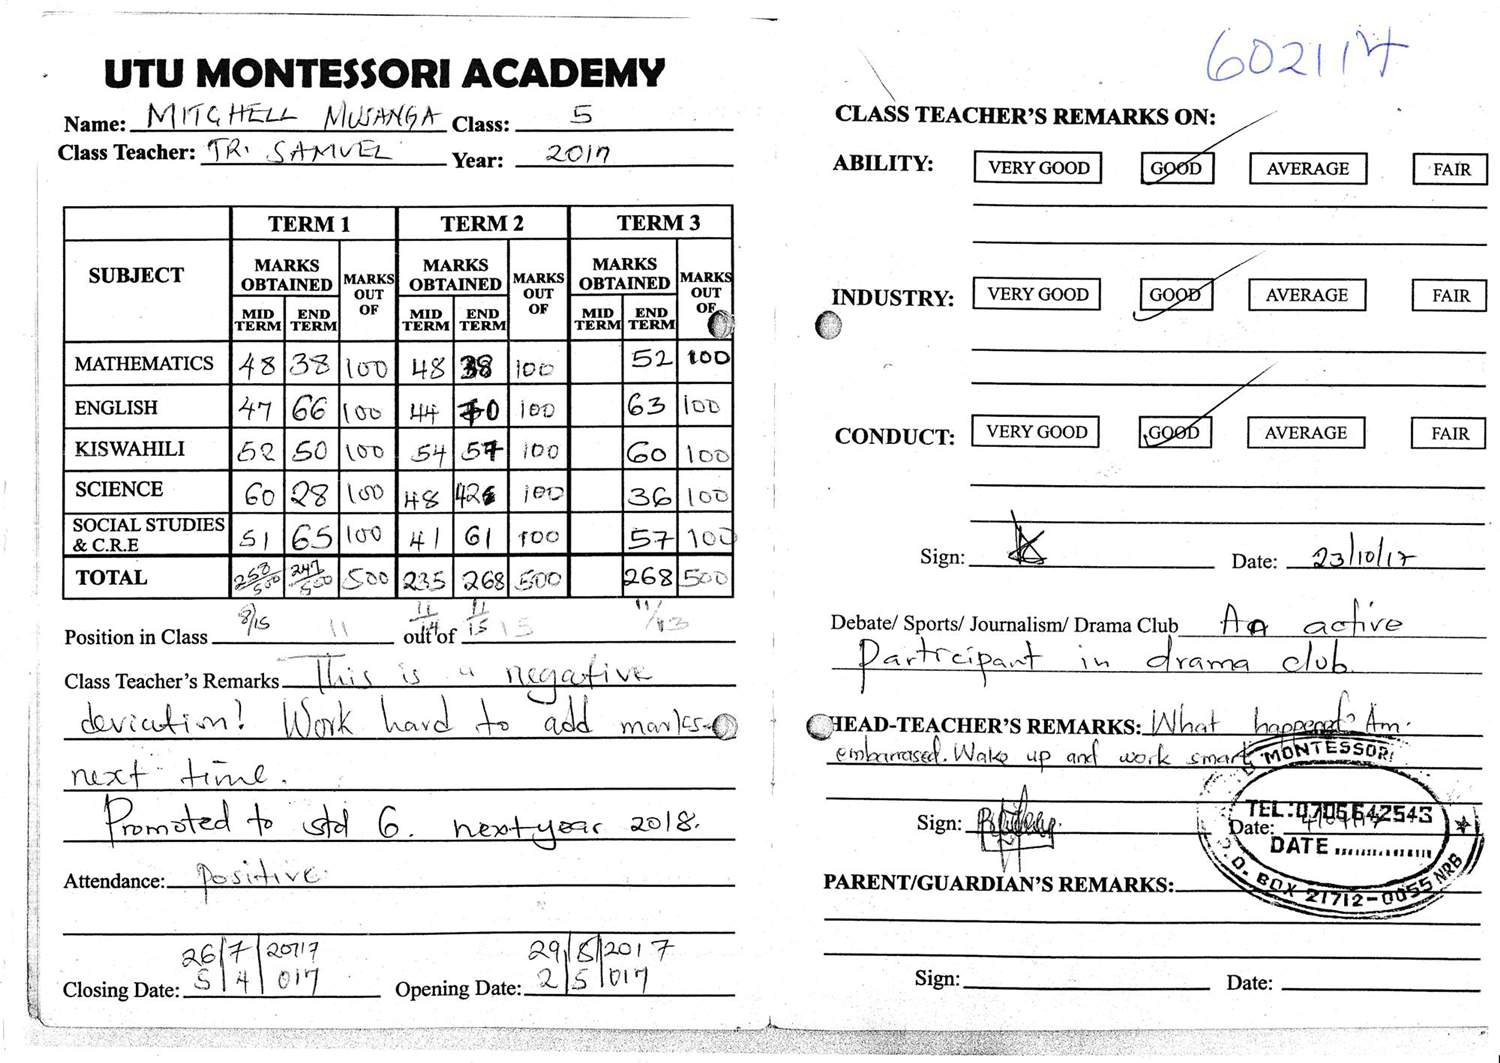 UTU MONTESSORI ACADEMY
Name: MITCHELL MUSANGA Class: 5
Class Teacher: TR. SAMUEL Year: 2017
TERM 1 TERM 2 TERM 3
SUBJECT MARKS OBTAINED MARKS OUT OF MARKS OBTAINED MARKS OUT OF MARKS OBTAINED MARKS OUT OF
MID TERM END TERM MID TERM END TERM MID TERM END TERM
MATHEMATICS 48 38 100 48 38 100 52 100
ENGLISH 47 66 100 44 70 100 63 100
KISWAHILI 52 50 100 54 57 100 60 100
SCIENCE 60 28 100 48 42 100 36 100
SOCIAL STUDIES & C.R.E 51 65 100 41 61 100 57 100
TOTAL 258/500 247/500 500 235 268 500 268 500
Position in Class 8/15 11 out of 11/14 11/15 15 11/13
Class Teacher's Remarks This is a negative
deviation! Work hard to add marks
next time.
Promoted to std 6. next year 2018.
Attendance: Positive.
26/7/2017 29/8/2017
Closing Date: 5/4/017 Opening Date: 2/5/017
602114
CLASS TEACHER'S REMARKS ON:
ABILITY: VERY GOOD GOOD AVERAGE FAIR
INDUSTRY: VERY GOOD GOOD AVERAGE FAIR
CONDUCT: VERY GOOD GOOD AVERAGE FAIR
Sign: Date: 23/10/17
Debate/ Sports/ Journalism/ Drama Club An active
Participant in drama club.
HEAD-TEACHER'S REMARKS: What happened? Am
embarrased. Wake up and work smart
MONTESSORI
TEL: 0706642543
Sign: Date:
DATE
P.O. BOX 21712-0055 NRB
PARENT/GUARDIAN'S REMARKS:
Sign: Date: